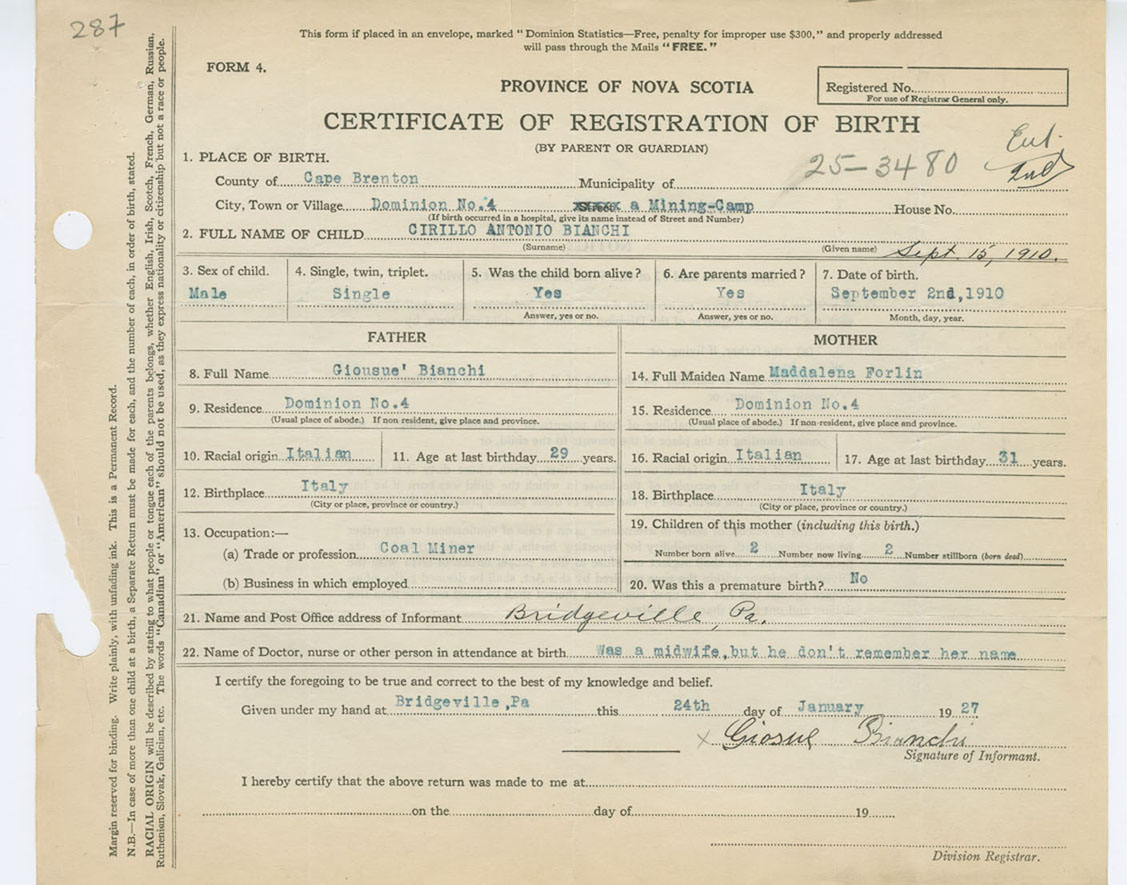 287
This form if placed in an envelope, marked "Dominion Statistics—Free, penalty for improper use $300," and properly addressed
will pass through the Mails "FREE."
FORM 4.
PROVINCE OF NOVA SCOTIA
Registered No.
For use of Registrar General only.
CERTIFICATE OF REGISTRATION OF BIRTH
(BY PARENT OR GUARDIAN)
25-3480
1. PLACE OF BIRTH.
County of Cape Brenton Municipality of
City, Town or Village Dominion No.4 a Mining-Camp House No.
(If birth occurred in a hospital, give its name instead of Street and Number)
2. FULL NAME OF CHILD CIRILLO ANTONIO BIANCHI
(Surname) (Given name) Sept. 15, 1910.
3. Sex of child. 4. Single, twin, triplet. 5. Was the child born alive? 6. Are parents married? 7. Date of birth.
Male Single Yes Yes September 2nd,1910
Answer, yes or no. Answer, yes or no. Month, day, year.
FATHER
8. Full Name Giousue' Bianchi
9. Residence Dominion No.4
(Usual place of abode.) If non resident, give place and province.
10. Racial origin Italian 11. Age at last birthday 29 years.
12. Birthplace Italy
(City or place, province or country.)
13. Occupation:—
(a) Trade or profession Coal Miner
(b) Business in which employed
MOTHER
14. Full Maiden Name Maddalena Forlin
15. Residence Dominion No.4
(Usual place of abode.) If non-resident, give place and province.
16. Racial origin Italian 17. Age at last birthday 31 years.
18. Birthplace Italy
(City or place, province or country.)
19. Children of this mother (including this birth.)
Number born alive 2 Number now living 2 Number stillborn (born dead)
20. Was this a premature birth? No
21. Name and Post Office address of Informant Bridgeville, Pa.
22. Name of Doctor, nurse or other person in attendance at birth Was a midwife,but he don't remember her name
I certify the foregoing to be true and correct to the best of my knowledge and belief.
Given under my hand at Bridgeville,Pa this 24th day of January 1927
x Giosue Bianchi
Signature of Informant.
I hereby certify that the above return was made to me at
on the day of 19
Division Registrar.
Margin reserved for binding. Write plainly, with unfading ink. This is a Permanent Record.
N.B.—In case of more than one child at a birth, a Separate Return must be made for each, and the number of each, in order of birth, stated.
RACIAL ORIGIN will be described by stating to what people or tongue each of the parents belongs, whether English, Irish, Scotch, French, German, Russian,
Ruthenian, Slovak, Galician, etc. The words "Canadian" or "American" should not be used, as they express nationality or citizenship but not a race or people.